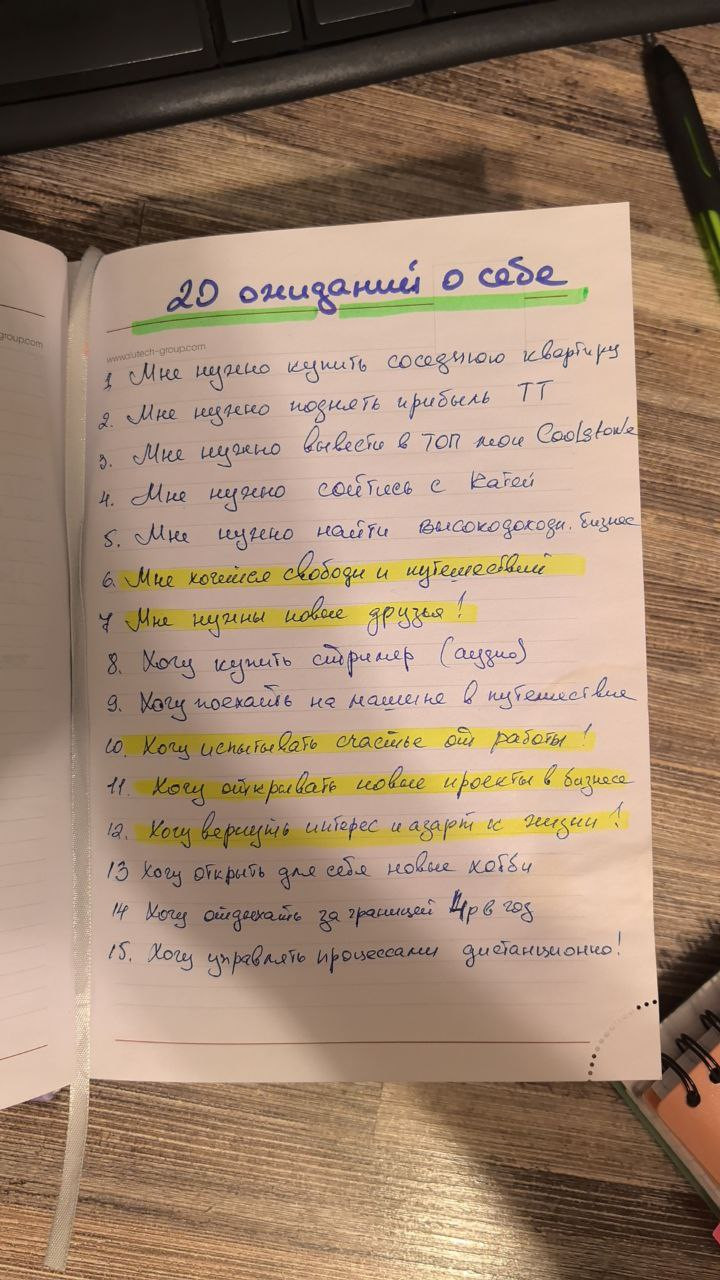 20 ожиданий о себе
group.com
www.alutech-group.com
1. Мне нужно купить соседнюю квартиру
2. Мне нужно поднять прибыль ТТ
3. Мне нужно вывести в ТОП мой Coolstone
4. Мне нужно сойтись с Катей
5. Мне нужно найти высокодоходн. бизнес
6. Мне хочется свободы и путешествий
7 Мне нужны новые друзья!
8. Хочу купить стример (аудио)
9. Хочу поехать на машине в путешествие
10. Хочу испытывать счастье от работы!
11. Хочу открывать новые проекты в бизнесе
12. Хочу вернуть интерес и азарт к жизни!
13 Хочу открыть для себя новые хобби
14 Хочу отдыхать за границей 4р в год
15. Хочу управлять процессами дистанционно!